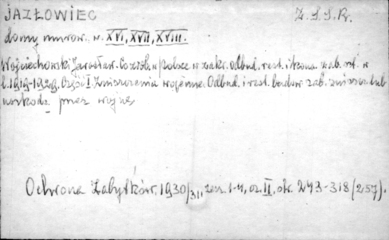 JAZŁOWIEC Z.S.S.R.
domy murow. w. XVI, XVII, XVIII.
Wojciechowski Jarosław. Co zrob. w Polsce w zakr. odbud. rest. i kons. zab. arch. w
l. 1919-1929. Część I. Zniszczenia wojenne. Odbud. i rest. budow. zab. zniszcz. lub
uszkodz. przez wojnę
Ochrona Zabytków. 1930/31, zesz. 1-4, cz. II, str. 243-318 (257).